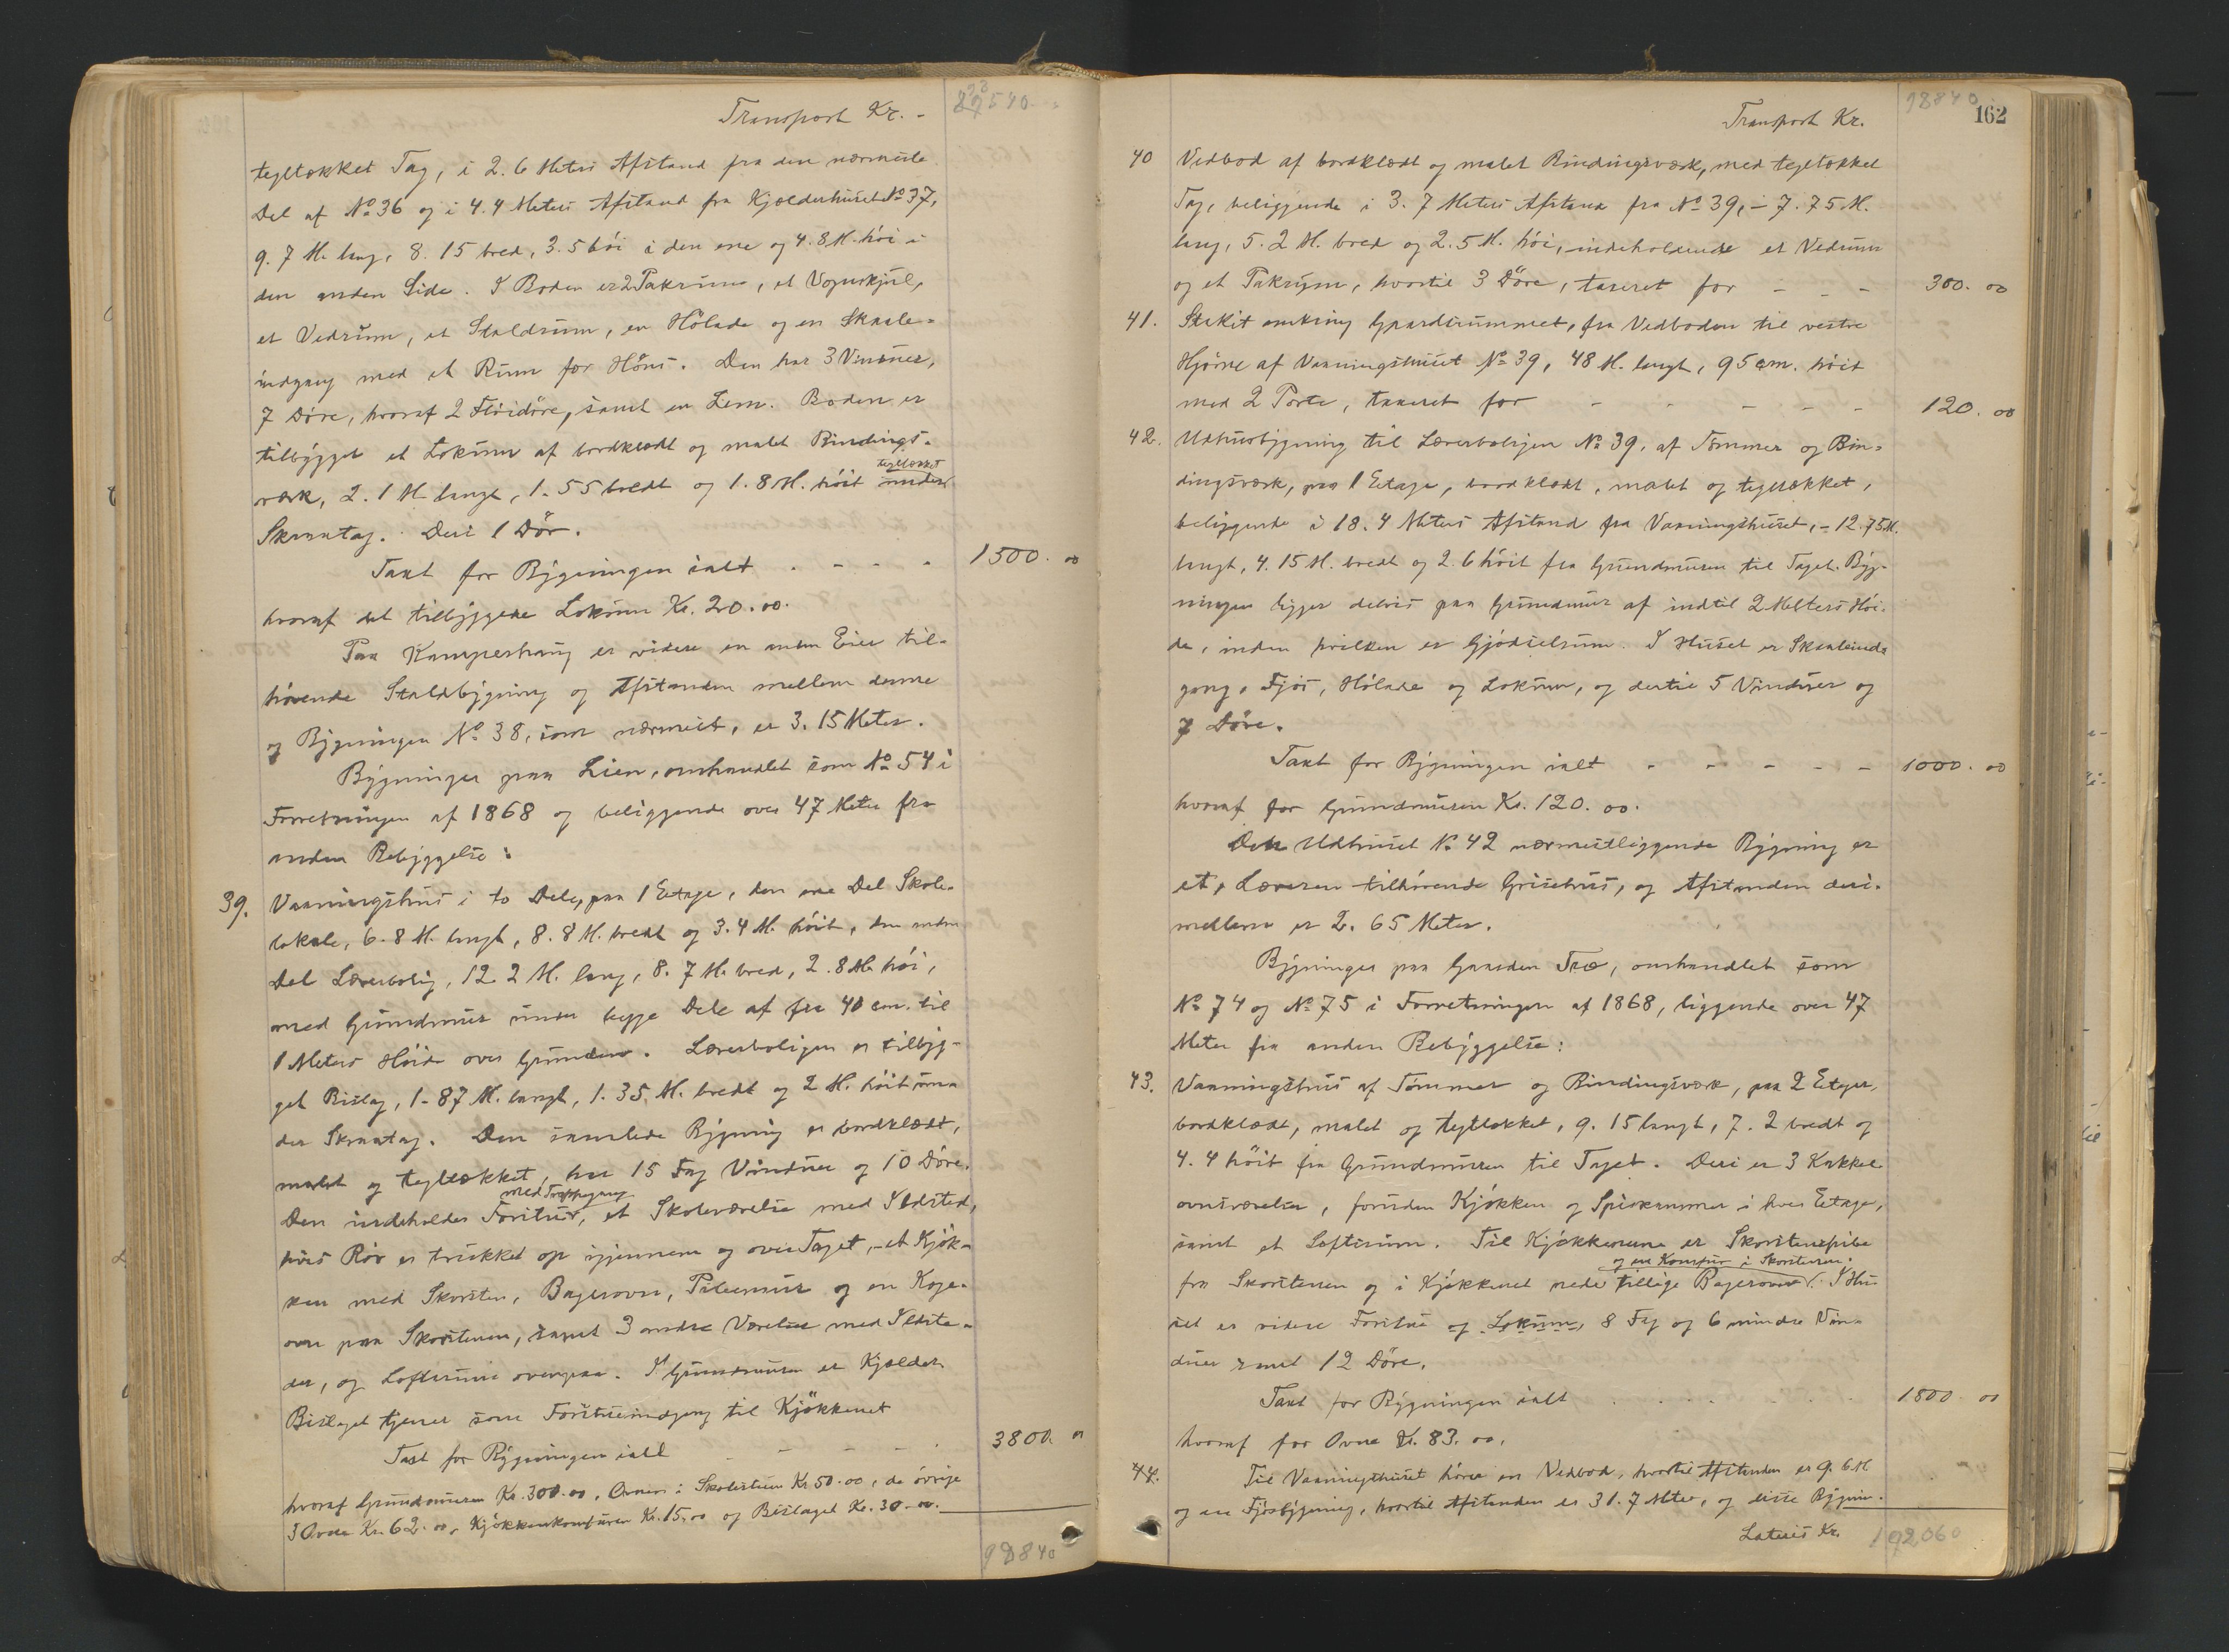 Transport Kr. -
tegltækket Tag, i 2.6 Meters Afstand fra den nærmeste
Del af No 36 og i 4.4 Meters Afstand fra Kjælderhuset No 37,
9.7 M. lang, 8.15 bred, 3.5 høi i den ene og 4.8 M. høi i
den anden Side. I Boden er 2 Takrum, et Vognskjul,
et Vedrum, et Staldrum, en Hølade og en Skaale-
indgang med et Rum for Høns. Den har 3 Vinduer,
7 Døre, hvoraf 2 Fløidøre, samt en Lem. Boden er
tilbygget et Lokum af bordklædt og malet Bindings-
værk, 2.1 M. langt, 1.55 bredt og 1.8 M. høit under tegltækket
Skraatag. Deri 1 Dør.
Taxt for Bygningen ialt - - - - 1500. 00
hvoraf det tilbyggede Lokum Kr. 20.00.
Paa Kamperhaug er videre en anden Eier til-
hørende Staldbygning og Afstanden mellem denne
og Bygningen No 38, som nærmest, er 3.15 Meter.
Bygninger paa Lien, omhandlet som No 54 i
Forretningen af 1868 og beliggende over 47 Meter fra
anden Bebyggelse:
39. Vaaningshus i to Dele, paa 1 Etage, den ene Del Skole-
lokale, 6.8 M. langt, 8.8 M. bredt og 3.4 M. høit, den anden
Del Lærerbolig, 12.2 M. lang, 8.7 M. bred, 2.8 M. høi,
med Grundmur under begge Dele af fra 40 cm. til
1 Meters Høide over Grunden. Lærerboligen er tilbyg-
get Bislag, 1.87 M. langt, 1.35 M. bredt og 2 M. høit un-
der Skraatag. Den samlede Bygning er bordklædt,
malet og tegltækket, har 15 Fag Vinduer og 10 Døre.
Den indeholder Forstue, med Trappegang et Skoleværelse med Ildsted,
hvis Rør er trukket op igjennem og over Taget, - et Kjøk-
ken med Skorsten, Bagerovn, Pibemur og en Koge-
ovn paa Skorstenen, samt 3 andre Værelser med Ildste-
der, og Loftsrum ovenpaa. I Grundmuren er Kjælder.
Bislaget tjener som Forstueindgang til Kjøkkenet
Taxt for Bygningen ialt - - - 3800. 00
hvoraf Grundmuren Kr. 300.00, Ovnen i Skolestuen Kr 50.00, de øvrige
3 Ovne Kr. 62.00, Kjøkkenkomfuren Kr. 15.00 og Bislaget Kr. 30.00.
162
Transport Kr. 98840
40 Vedbod af bordklædt og malet Bindingsværk, med tegltækket
Tag, beliggende i 3.7 Meters Afstand fra No 39, - 7.75 M.
lang, 5.2 M. bred og 2.5 M. høi, indeholdende et Vedrum
og et Takrum, hvortil 3 Døre, taxeret for - - - 300. 00
41. Stakit omkring Gaardsrummet, fra Vedboden til vestre
Hjørne af Vaaningshuset No 39, 48 M. langt, 95 cm. høit
med 2 Porte, taxeret for - - - - - 120. 00
42. Udhusbygning til Lærerboligen No 39, af Tømmer og Bin-
dingsværk, paa 1 Etage, bordklædt, malet og tegltækket,
beliggende i 18.4 Meters Afstand fra Vaaningshuset, - 12.75 M.
langt, 4.15 M. bredt og 2.6 høit fra Grundmuren til Taget. Byg-
ningen ligger delvis paa Grundmur af indtil 2 Meters Høi-
de, inden hvilken er Gjødselrum. I Huset er Skaaleind-
gang, Fjøs, Hølade og Lokum, og dertil 5 Vinduer og
7 Døre.
Taxt for Bygningen ialt - - - - - 1000. 00
hvoraf for Grundmuren Kr. 120.00.
Den Udhuset No 42 nærmestliggende Bygning er
et, Læreren tilhørende Grisehus, og Afstanden deri-
mellem er 2.65 Meter.
Bygninger paa Gaarden Træ, omhandlet som
No 74 og No 75 i Forretningen af 1868, liggende over 47
Meter fra anden Bebyggelse:
43. Vaaningshus af Tømmer og Bindingsværk, paa 2 Etager,
bordklædt, malet og tegltækket, 9.15 langt, 7.2 bredt og
4.4 høit fra Grundmuren til Taget. Deri er 3 Kakkel-
ovnsværelser, foruden Kjøkken og Spiskammer i hver Etage,
samt et Loftsrum. Til Kjøkkenerne er Skorstenspibe
fra Skorstenen og i Kjøkkenet nede tillige Bagerovn og en Komfur i Skorstenen. I Hu-
set er videre Forstue og Lokum, 8 Fag og 6 mindre Vin-
duer samt 12 Døre.
Taxt for Bygningen ialt - - - - 1800. 00
hvoraf for Ovne Kr. 83.00.
44. Til Vaaningshuset hører en Vedbod, hvortil Afstanden er 9.6 M
og en Fjøsbygning, hvortil Afstanden er 31.7 Meter, og disse Bygnin-
Lateris Kr. 192060